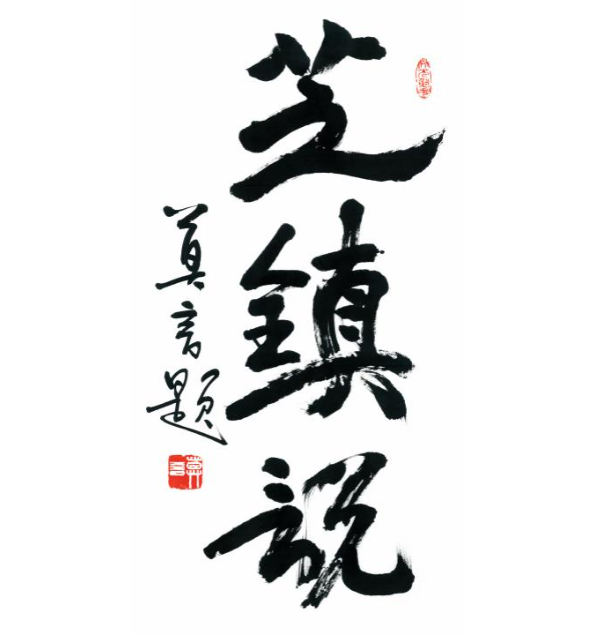 芝鎮説
莫言題